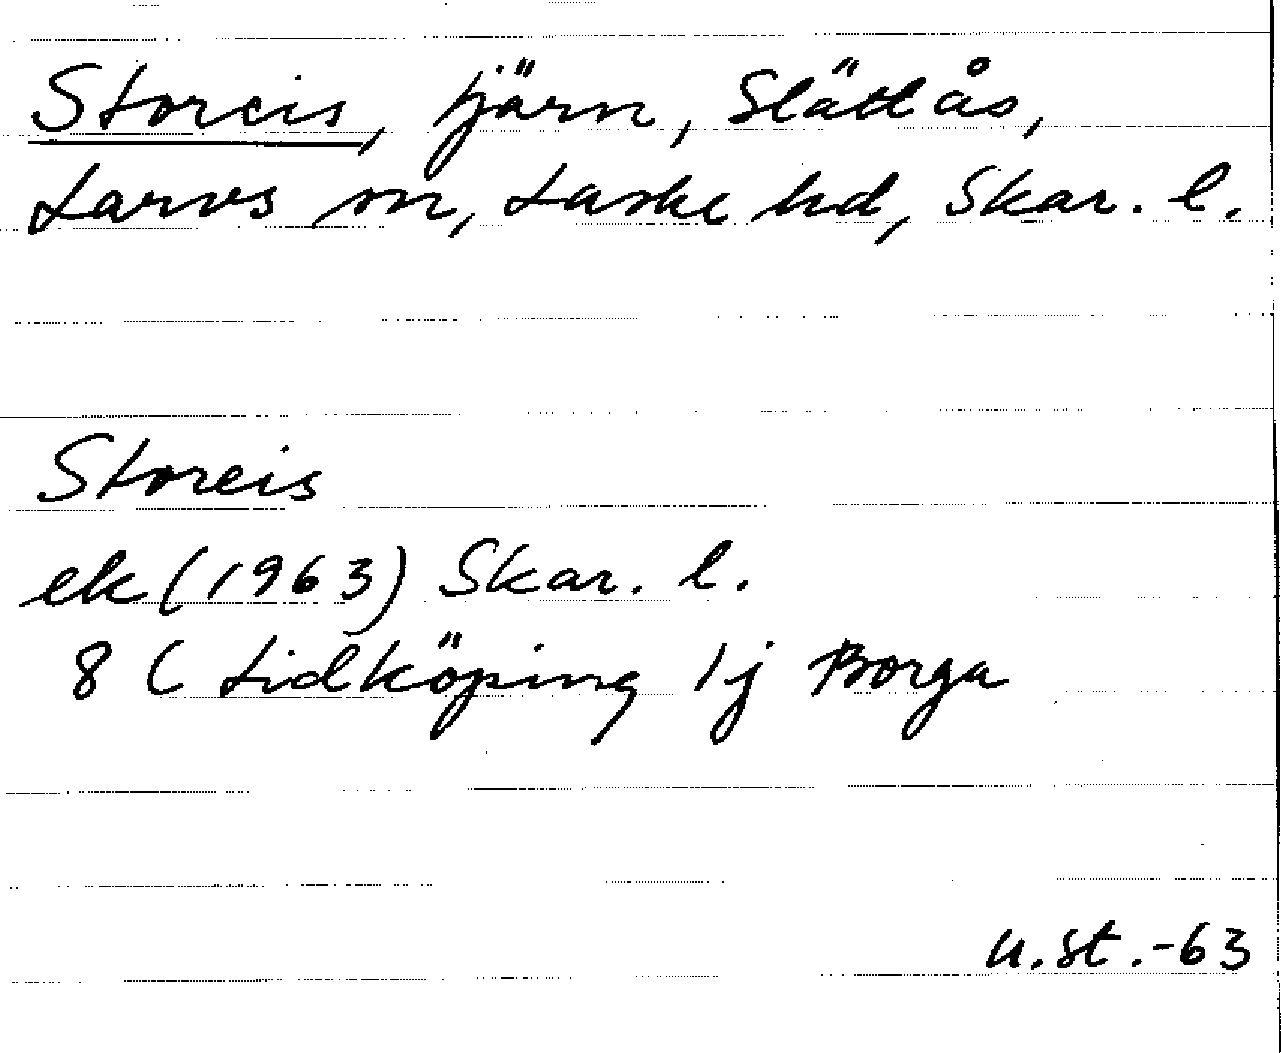 Storeis, tjärn, Slättås,
Larvs sn, Laske hd, Skar. l.
Storeis
ek (1963) Skar. l.
8 C Lidköping 1j Borga
u.st.-63